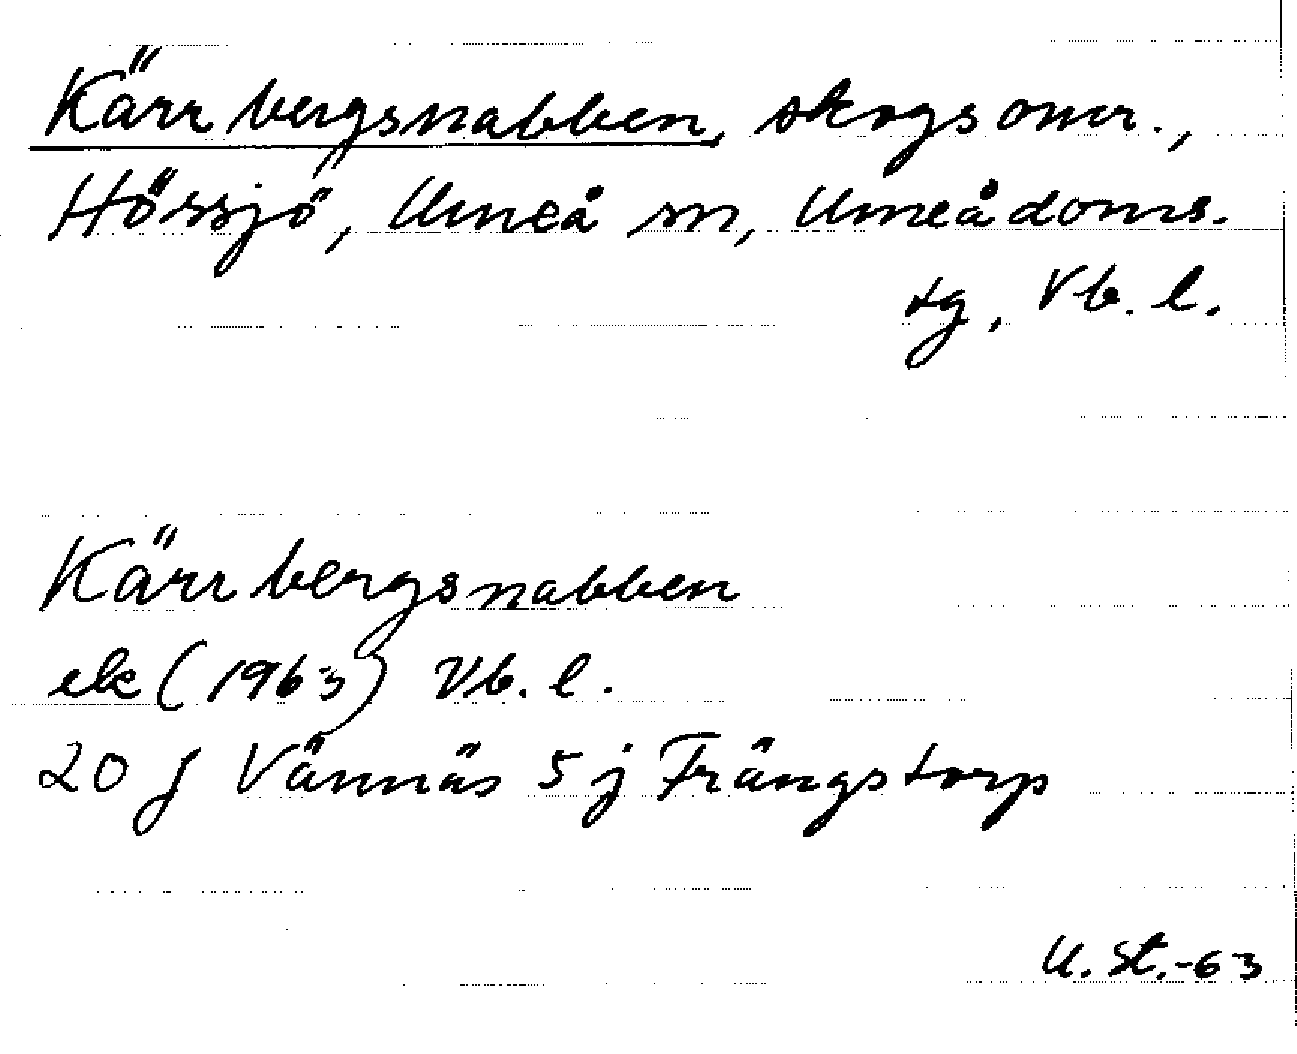 Kärrbergsnabben, skogsomr.,
Hössjö, Umeå sn, Umeå doms.
tg, Vb. l.
Kärrbergsnabben
ek (1963) Vb. l.
20 J Vännäs 5 j Främgstorp
U. St.-63